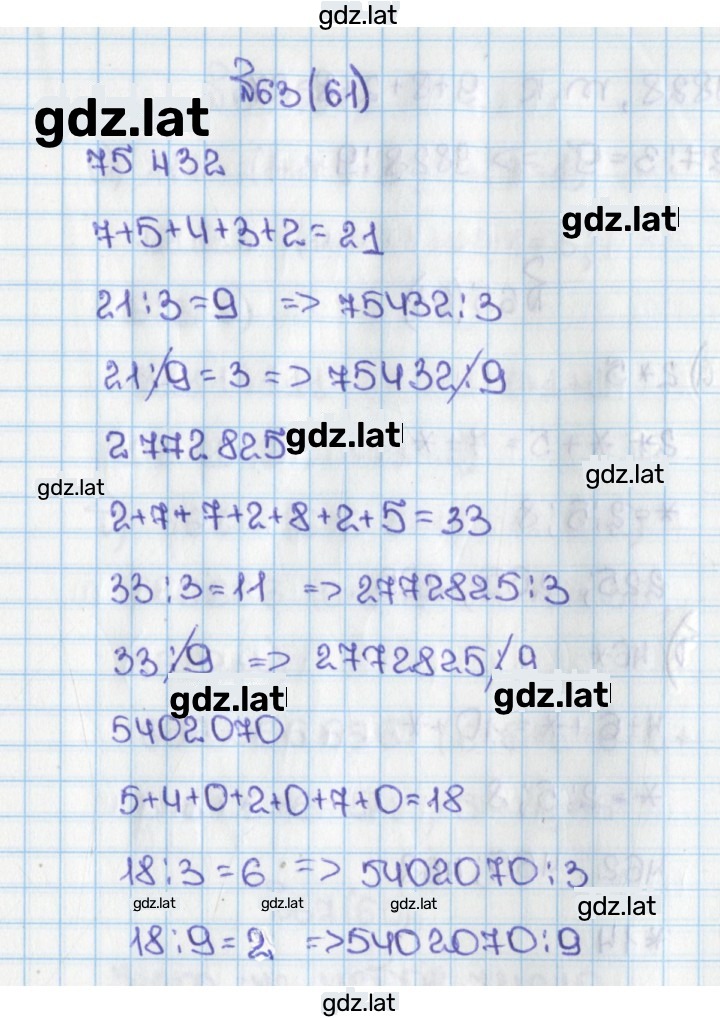 gdz.lat
№63(61)
gdz.lat
75 432
gdz.lat
7+5+4+3+2=21
21:3=9 => 75432:3
21⁒9=3 => 75432⁒9
2 772 825
gdz.lat
gdz.lat
gdz.lat
2+7+7+2+8+2+5=33
33:3=11 => 2772825:3
33⁒9 => 2772825⁒9
gdz.lat
gdz.lat
5402070
5+4+0+2+0+7+0=18
18:3=6 => 5402070:3
gdz.lat
gdz.lat
gdz.lat
gdz.lat
18:9=2 =>5402070:9
gdz.lat